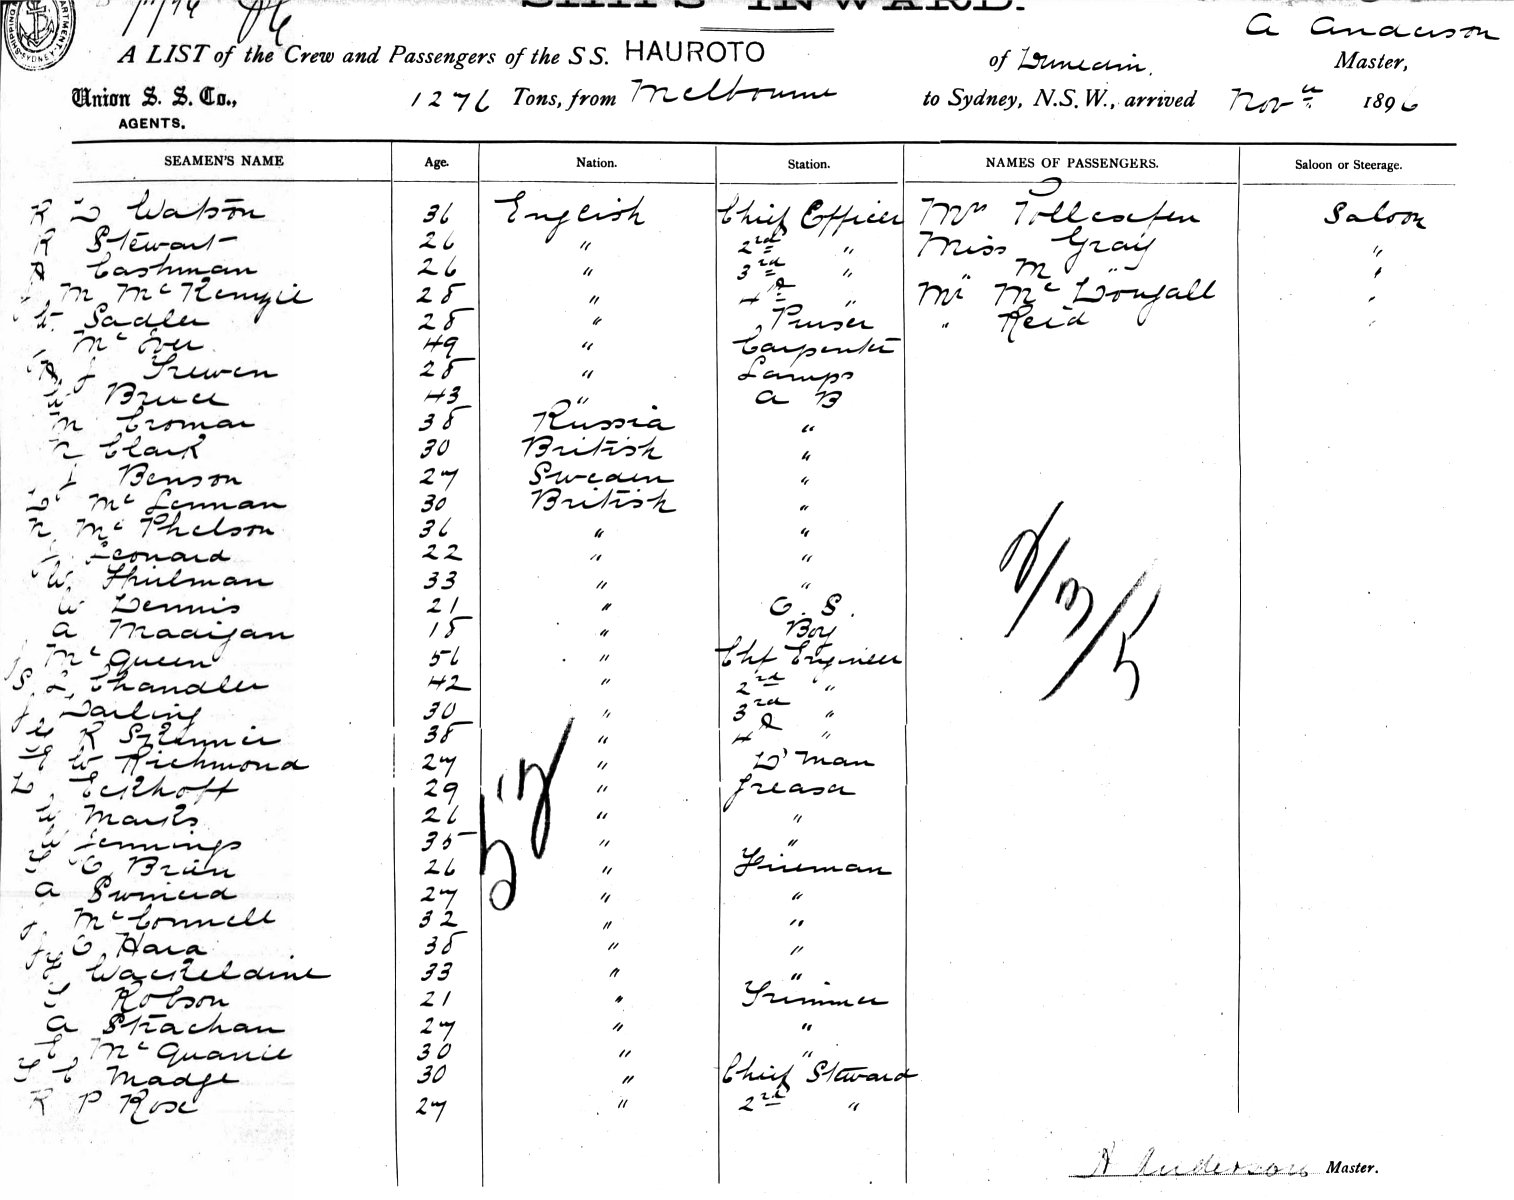 SHIPS INWARD.
A Anderson
A LIST of the Crew and Passengers of the SS. HAUROTO of Dunedin, Master,
Union S. S. Co., 1276 Tons, from Melbourne to Sydney, N.S.W., arrived Nov 1896
AGENTS.
SEAMEN'S NAME Age. Nation. Station. NAMES OF PASSENGERS. Saloon or Steerage.
R D Watson 36 English Chief Officer Mrs Tollesefen Saloon
R Stewart 26 " 2nd " Miss Gray "
A Cashman 26 " 3rd " " M "
M McKenzie 28 " 4th " Mr McDougall "
Sadler 28 " Purser " Reid "
McIver 49 " Carpenter
J Trewen 28 " Lamps
W Bruce 43 " A B
M Cromar 38 Russia "
N Clark 30 British "
Benson 27 Sweden "
D McLennan 30 British "
N McPhelson 36 " "
Leonard 22 " "
W Spielman 33 " "
W Dennis 21 " O. S.
A Madigan 18 " Boy
J McQueen 56 " Chf Engineer
S. L. Chandler 42 " 2nd "
J. Darling 30 " 3rd "
R Skennie 38 " 4th "
W Richmond 27 " D'Man
D. Eckhoff 29 " Greaser
Marks 26 " "
W Jennings 35 " "
T O Brien 26 " Fireman
A Swinerd 27 " "
J. McConnell 32 " "
J. O Hara 38 " "
Wackeldine 33 " "
T Robson 21 " Trimmer
A Strachan 27 " "
McQuarrie 30 " "
T C Madge 30 " Chief Steward
R P Rose 27 " 2nd "
A Anderson Master.